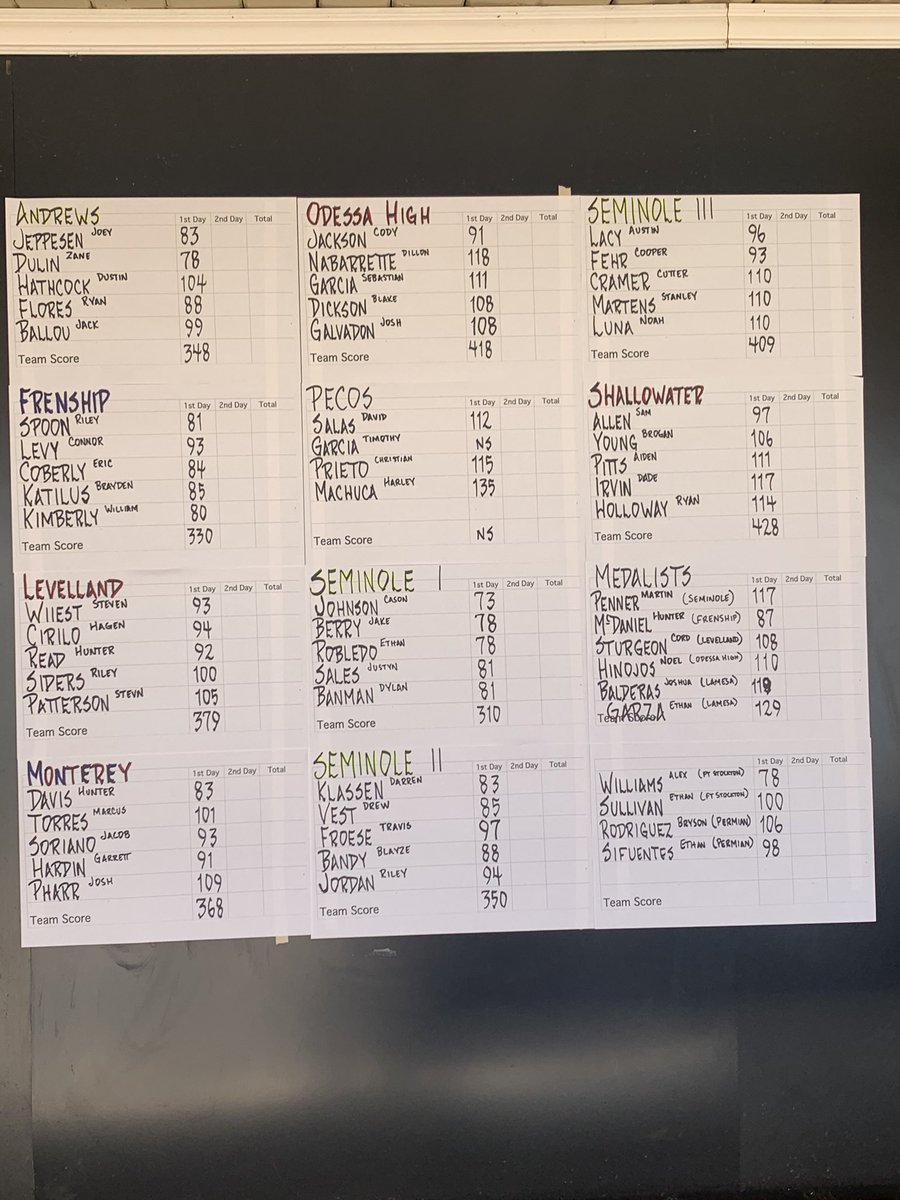 ANDREWS 1st Day 2nd Day Total
JEPPESEN JOEY 83
DULIN ZANE 78
HATHCOCK DUSTIN 104
FLORES RYAN 88
BALLOU JACK 99
Team Score 348
FRENSHIP 1st Day 2nd Day Total
SPOON RILEY 81
LEVY CONNOR 93
COBERLY ERIC 84
KATILUS BRAYDEN 85
KIMBERLY WILLIAM 80
Team Score 330
LEVELLAND 1st Day 2nd Day Total
WIIEST STEVEN 93
CIRILO HAGEN 94
READ HUNTER 92
SIPERS RILEY 100
PATTERSON STEVN 105
Team Score 379
MONTEREY 1st Day 2nd Day Total
DAVIS HUNTER 83
TORRES MARCUS 101
SORIANO JACOB 93
HARDIN GARRETT 91
PHARR JOSH 109
Team Score 368
ODESSA HIGH 1st Day 2nd Day Total
JACKSON CODY 91
NABARRETTE DILLON 118
GARCIA SEBASTIAN 111
DICKSON BLAKE 108
GALVADON JOSH 108
Team Score 418
PECOS 1st Day 2nd Day Total
SALAS DAVID 112
GARCIA TIMOTHY NS
PRIETO CHRISTIAN 115
MACHUCA HARLEY 135
Team Score NS
SEMINOLE I 1st Day 2nd Day Total
JOHNSON CASON 73
BERRY JAKE 78
ROBLEDO ETHAN 78
SALES JUSTYN 81
BANMAN DYLAN 81
Team Score 310
SEMINOLE II 1st Day 2nd Day Total
KLASSEN DARREN 83
VEST DREW 85
FROESE TRAVIS 97
BANDY BLAYZE 88
JORDAN RILEY 94
Team Score 350
SEMINOLE III 1st Day 2nd Day Total
LACY AUSTIN 96
FEHR COOPER 93
CRAMER CUTTER 110
MARTENS STANLEY 110
LUNA NOAH 110
Team Score 409
SHALLOWATER 1st Day 2nd Day Total
ALLEN SAM 97
YOUNG BROGAN 106
PITTS AIDEN 111
IRVIN DADE 117
HOLLOWAY RYAN 114
Team Score 428
MEDALISTS 1st Day 2nd Day Total
PENNER MARTIN (SEMINOLE) 117
McDANIEL HUNTER (FRENSHIP) 87
STURGEON CORD (LEVELLAND) 108
HINOJOS NOEL (ODESSA HIGH) 110
BALDERAS JOSHUA (LAMESA)
GARZA ETHAN (LAMESA) 129
1st Day 2nd Day Total
WILLIAMS ALEX (FT STOCKTON) 78
SULLIVAN ETHAN (FT STOCKTON) 100
RODRIGUEZ BRYSON (PERMIAN) 106
SIFUENTES ETHAN (PERMIAN) 98
Team Score